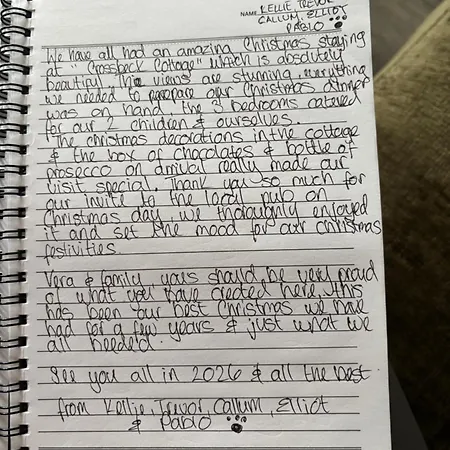 NAME KELLIE, TREVOR
CALLUM, ELLIOT
PABLO
We have all had an amazing Christmas staying
at "Crossbeck Cottage" which is absolutely
beautiful. The views are stunning, everything
we needed to prepare our Christmas dinner
was on hand, the 3 bedrooms catered
for our 2 children & ourselves.
The christmas decorations in the cottage
& the box of chocolates & bottle of
prosecco on arrival really made our
visit special. Thank you so much for
our invite to the local pub on
Christmas day, we thoroughly enjoyed
it and set the mood for our christmas
festivities.
Vera & family, yous should be very proud
of what you have created here. This
has been our best Christmas we have
had for a few years & just what we
all needed.
See you all in 2026 & all the best.
from Kellie, Trevor, Callum, Elliot
& Pablo